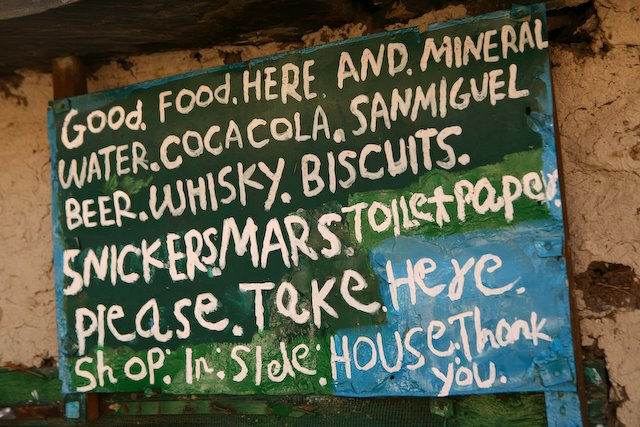 Good. Food. HERE. AND. MINERAL
WATER. COCACOLA. SANMIGUEL
BEER. WHISKY. BISCUITS.
SNICKERS. MARS TOILEt PAPER.
PLEASE. TAKE. HeRe.
SHOP: In: SIDe: HOUSE. Thank
YOU.